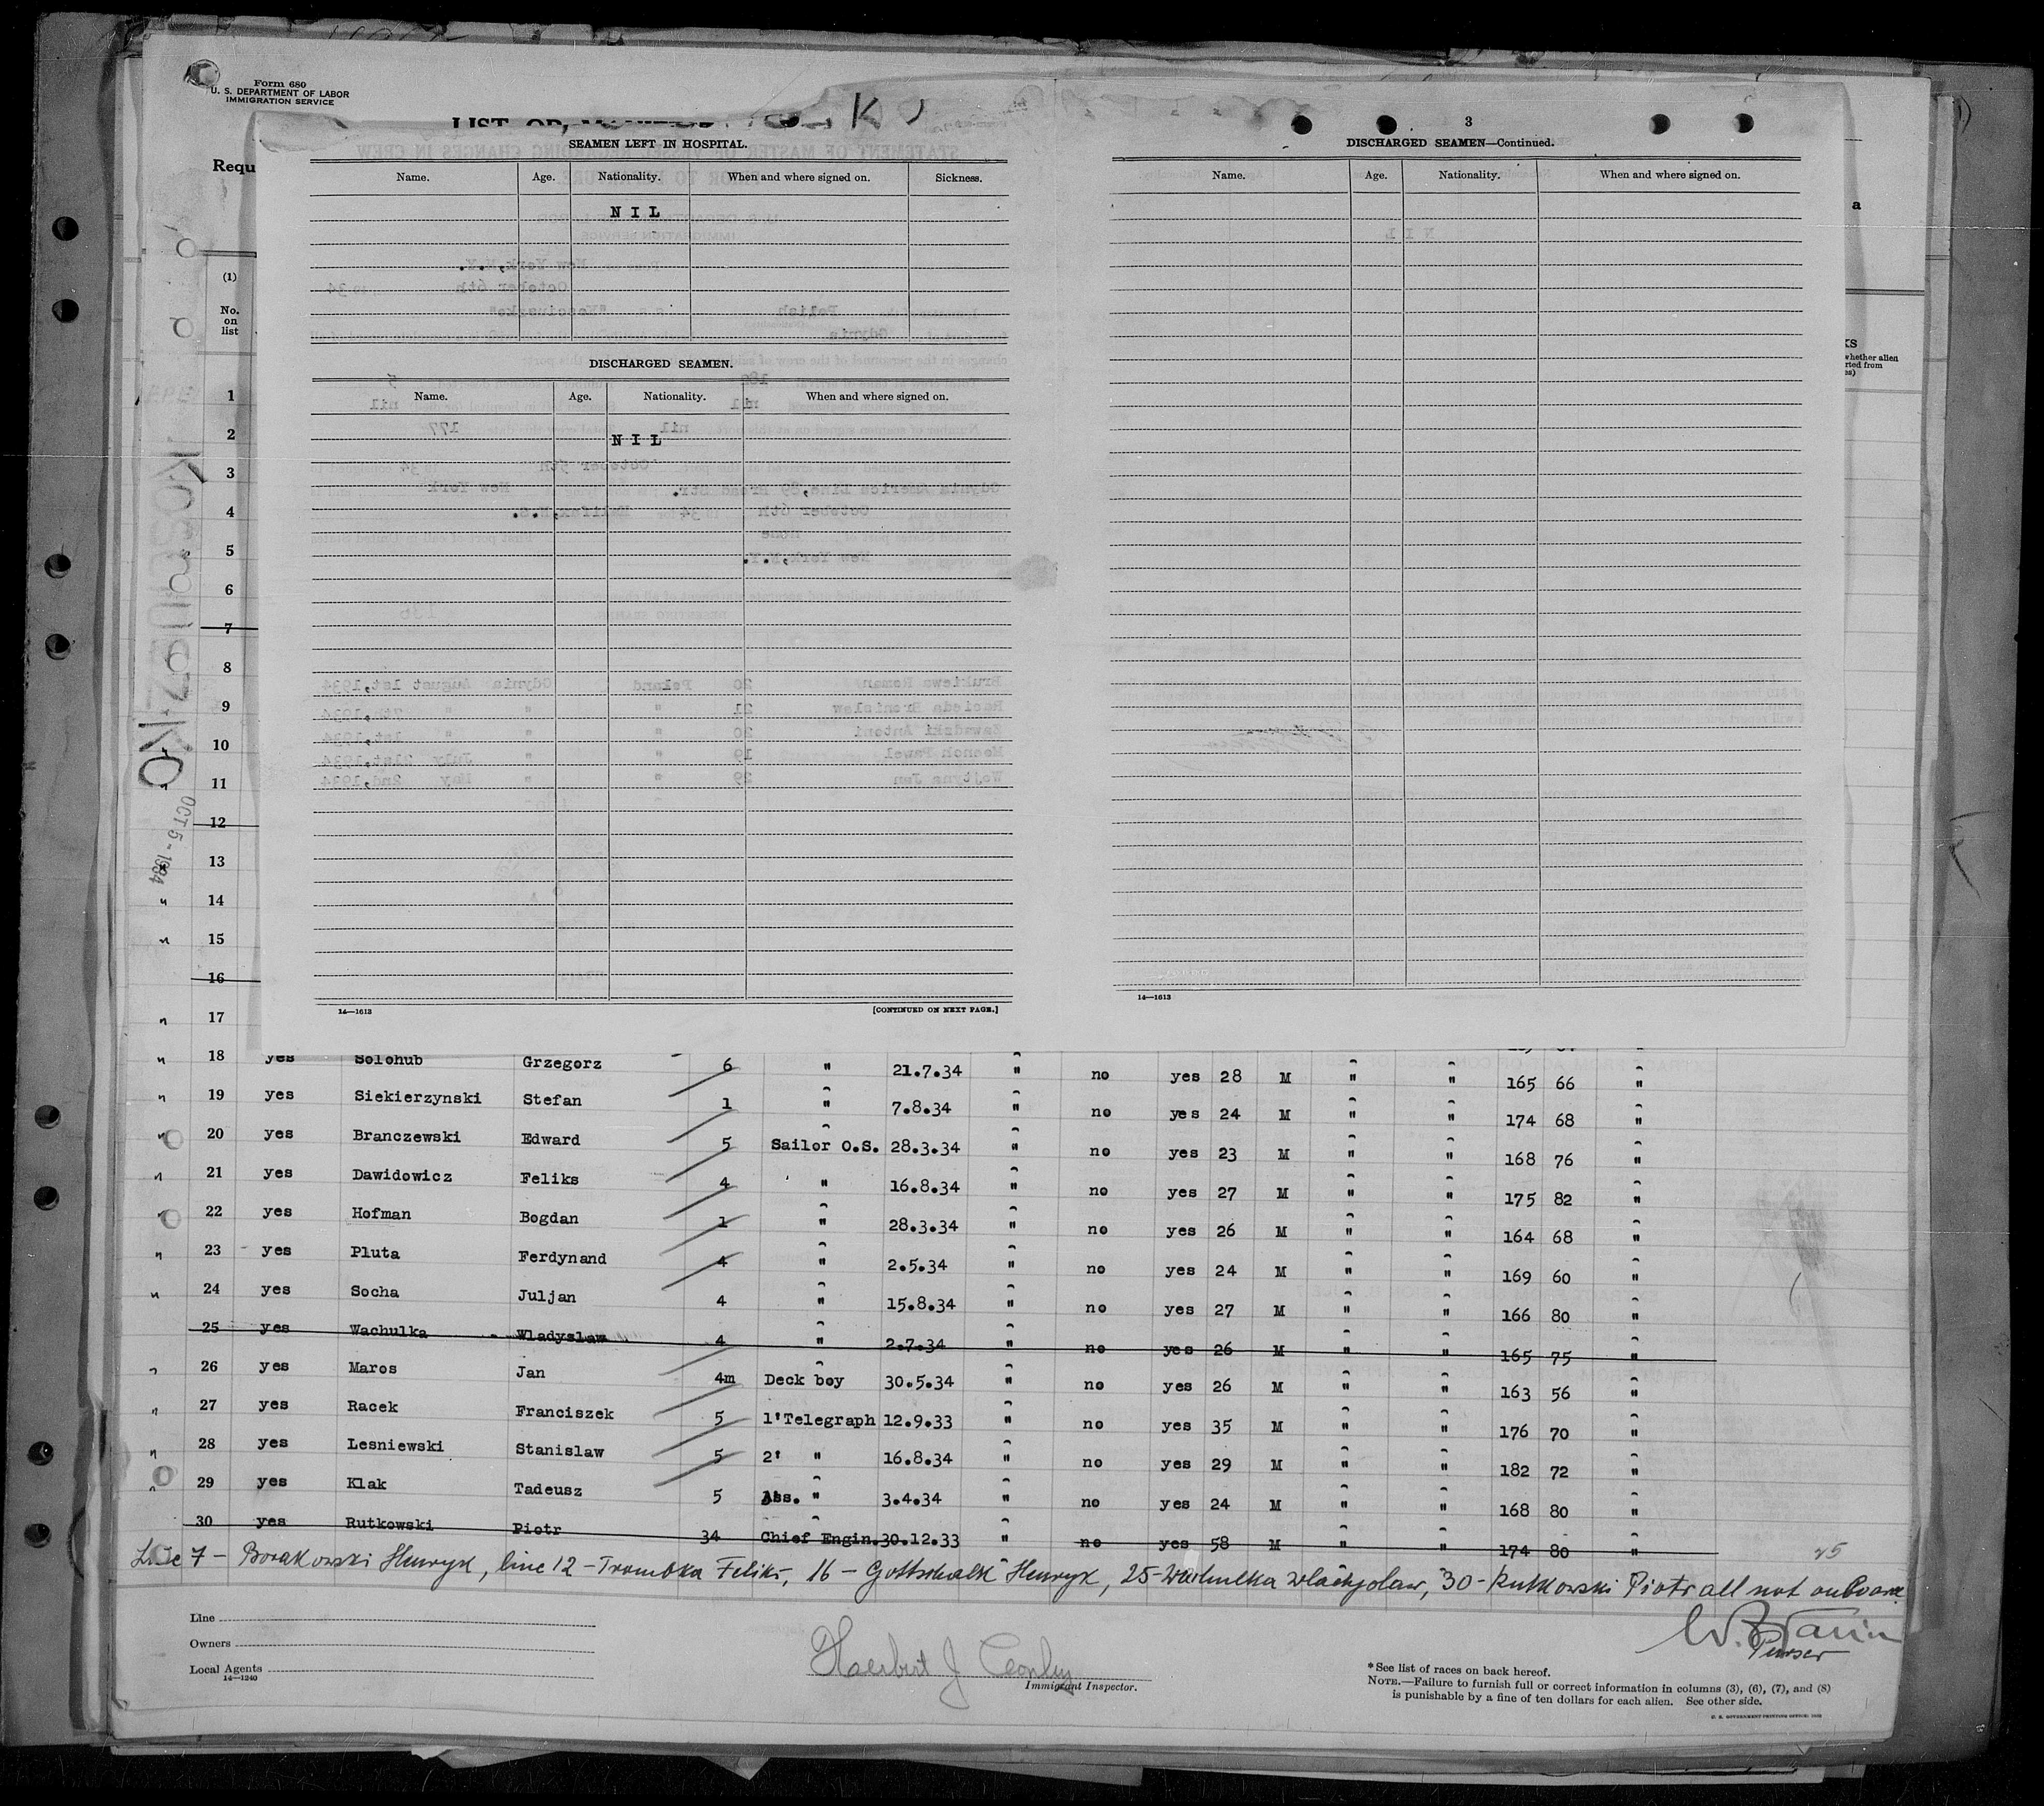 Form 680
U. S. DEPARTMENT OF LABOR
IMMIGRATION SERVICE
LIST OR
Requ
a
(1)
No.
on
list
KS
whether alien
rted from
es)
KOSCIUSZKO
OCT 5 - 1934
SEAMEN LEFT IN HOSPITAL.
Name. Age. Nationality. When and where signed on. Sickness.
N I L
DISCHARGED SEAMEN.
Name. Age. Nationality. When and where signed on.
N I L
14—1613 [CONTINUED ON NEXT PAGE.]
3
DISCHARGED SEAMEN—Continued.
Name. Age. Nationality. When and where signed on.
14—1613
1
2
3
4
5
6
7
8
9
10
11
12
13
14
15
16
17
18 yes Solohub Grzegorz 6 " 21.7.34 " no yes 28 M " " 165 66 "
19 yes Siekierzynski Stefan 1 " 7.8.34 " no yes 24 M " " 174 68 "
20 yes Branczewski Edward 5 Sailor O.S. 28.3.34 " no yes 23 M " " 168 76 "
21 yes Dawidowicz Feliks 4 " 16.8.34 " no yes 27 M " " 175 82 "
22 yes Hofman Bogdan 1 " 28.3.34 " no yes 26 M " " 164 68 "
23 yes Pluta Ferdynand 4 " 2.5.34 " no yes 24 M " " 169 60 "
24 yes Socha Juljan 4 " 15.8.34 " no yes 27 M " " 166 80 "
25 yes Wachulka Wladyslaw 4 " 2.7.34 " no yes 26 M " " 165 75 "
26 yes Maros Jan 4m Deck boy 30.5.34 " no yes 26 M " " 163 56 "
27 yes Racek Franciszek 5 1'Telegraph 12.9.33 " no yes 35 M " " 176 70 "
28 yes Lesniewski Stanislaw 5 2' " 16.8.34 " no yes 29 M " " 182 72 "
29 yes Klak Tadeusz 5 Ass. " 3.4.34 " no yes 24 M " " 168 80 "
30 yes Rutkowski Piotr 34 Chief Engin. 30.12.33 " no yes 58 M " " 174 80 "
25
Line 7 - Borakowski Henryk, line 12 - Trombka Feliks, 16 - Gottschalk Henryk, 25 - Wachulka Wladyslaw, 30 - Rutkowski Piotr all not on board
Purser
Line
Owners
Local Agents
14—1240
Herbert J Conley
Immigrant Inspector.
*See list of races on back hereof.
NOTE.—Failure to furnish full or correct information in columns (3), (6), (7), and (8)
is punishable by a fine of ten dollars for each alien. See other side.
U. S. GOVERNMENT PRINTING OFFICE: